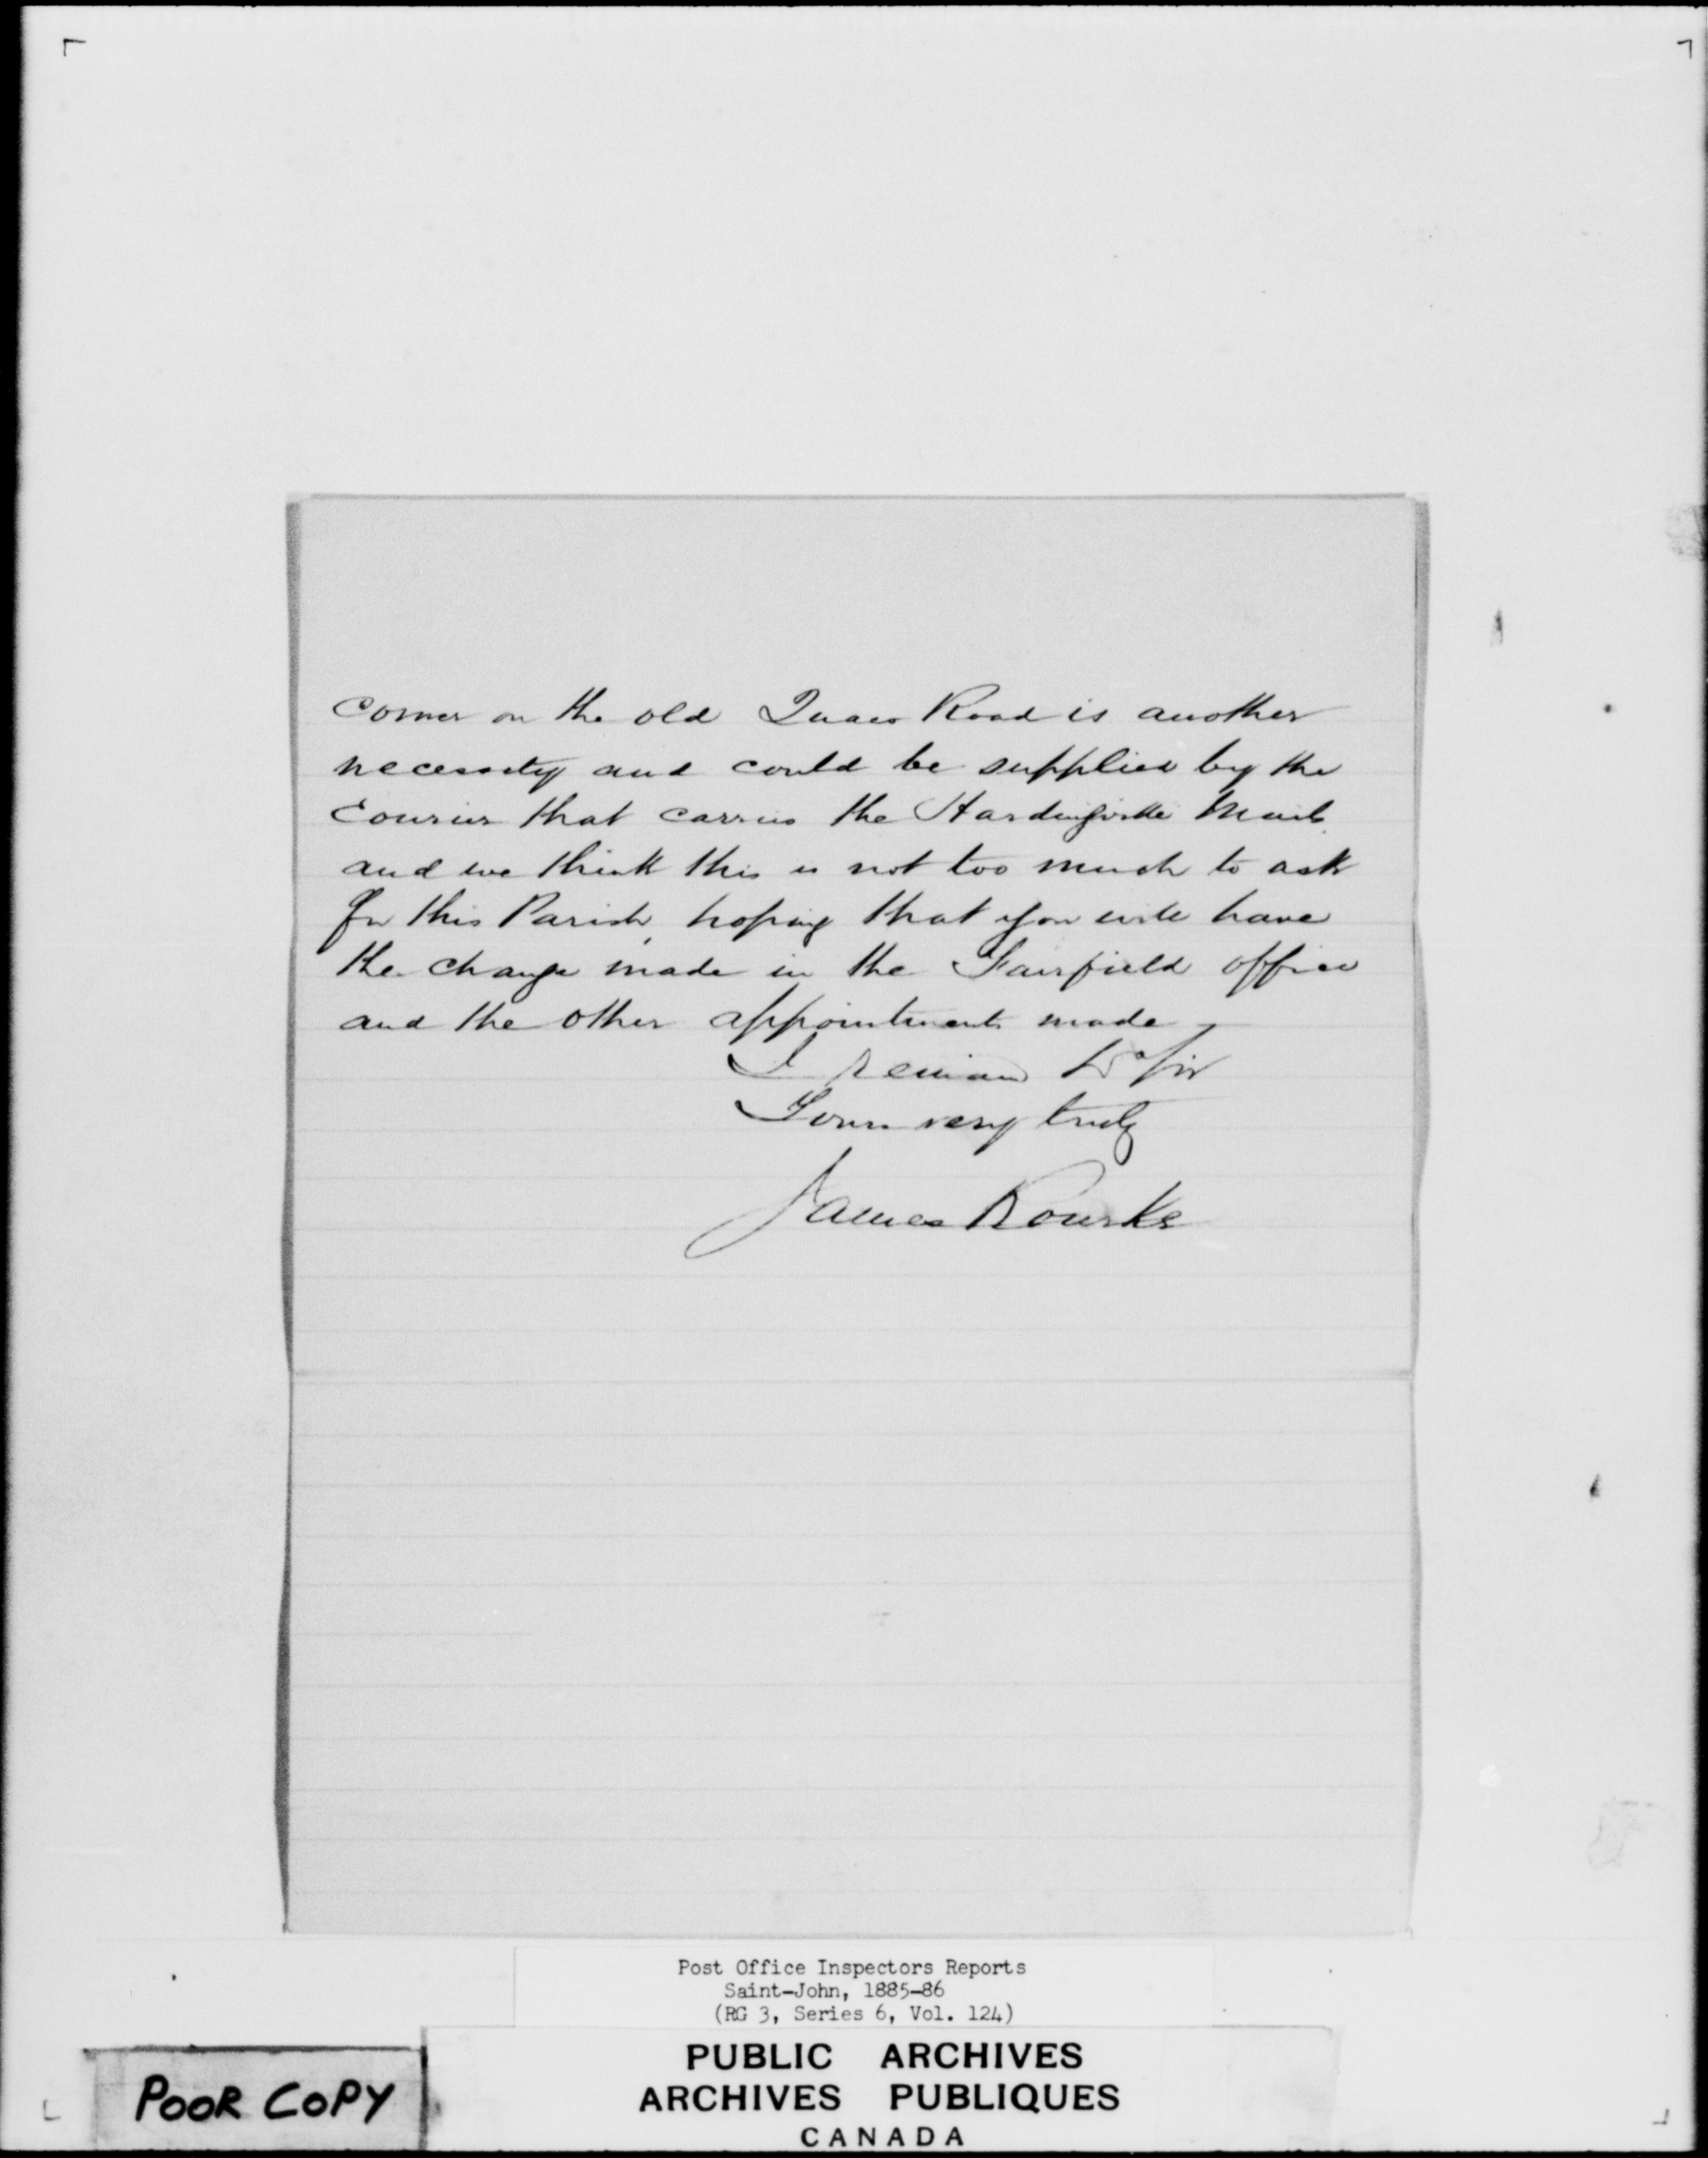 corner on the old Quaco Road is another
necessity and could be supplied by the
Courier that carries the Hardingville Mail
and we think this is not too much to ask
for this Parish, hoping that you will have
the change made in the Fairfield office
and the other appointments made
I remain Dr Sir
Yours very truly
James Rourke
Post Office Inspectors Reports
Saint-John, 1885-86
(RG 3, Series 6, Vol. 124)
PUBLIC ARCHIVES
ARCHIVES PUBLIQUES
CANADA
POOR COPY